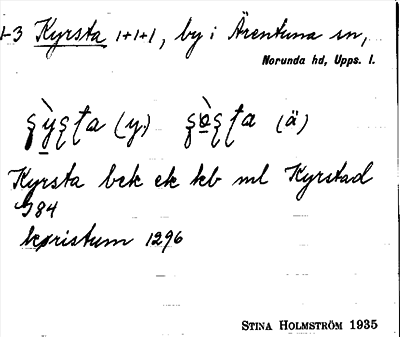 1-3 Kyrsta 1+1+1, by i Ärentuna sn,
Norunda hd, Upps. l.
(y.) (ä)
Kyrsta bck ek kb ml Kyrstad
G84
kyristum 1296
STINA HOLMSTRÖM 1935